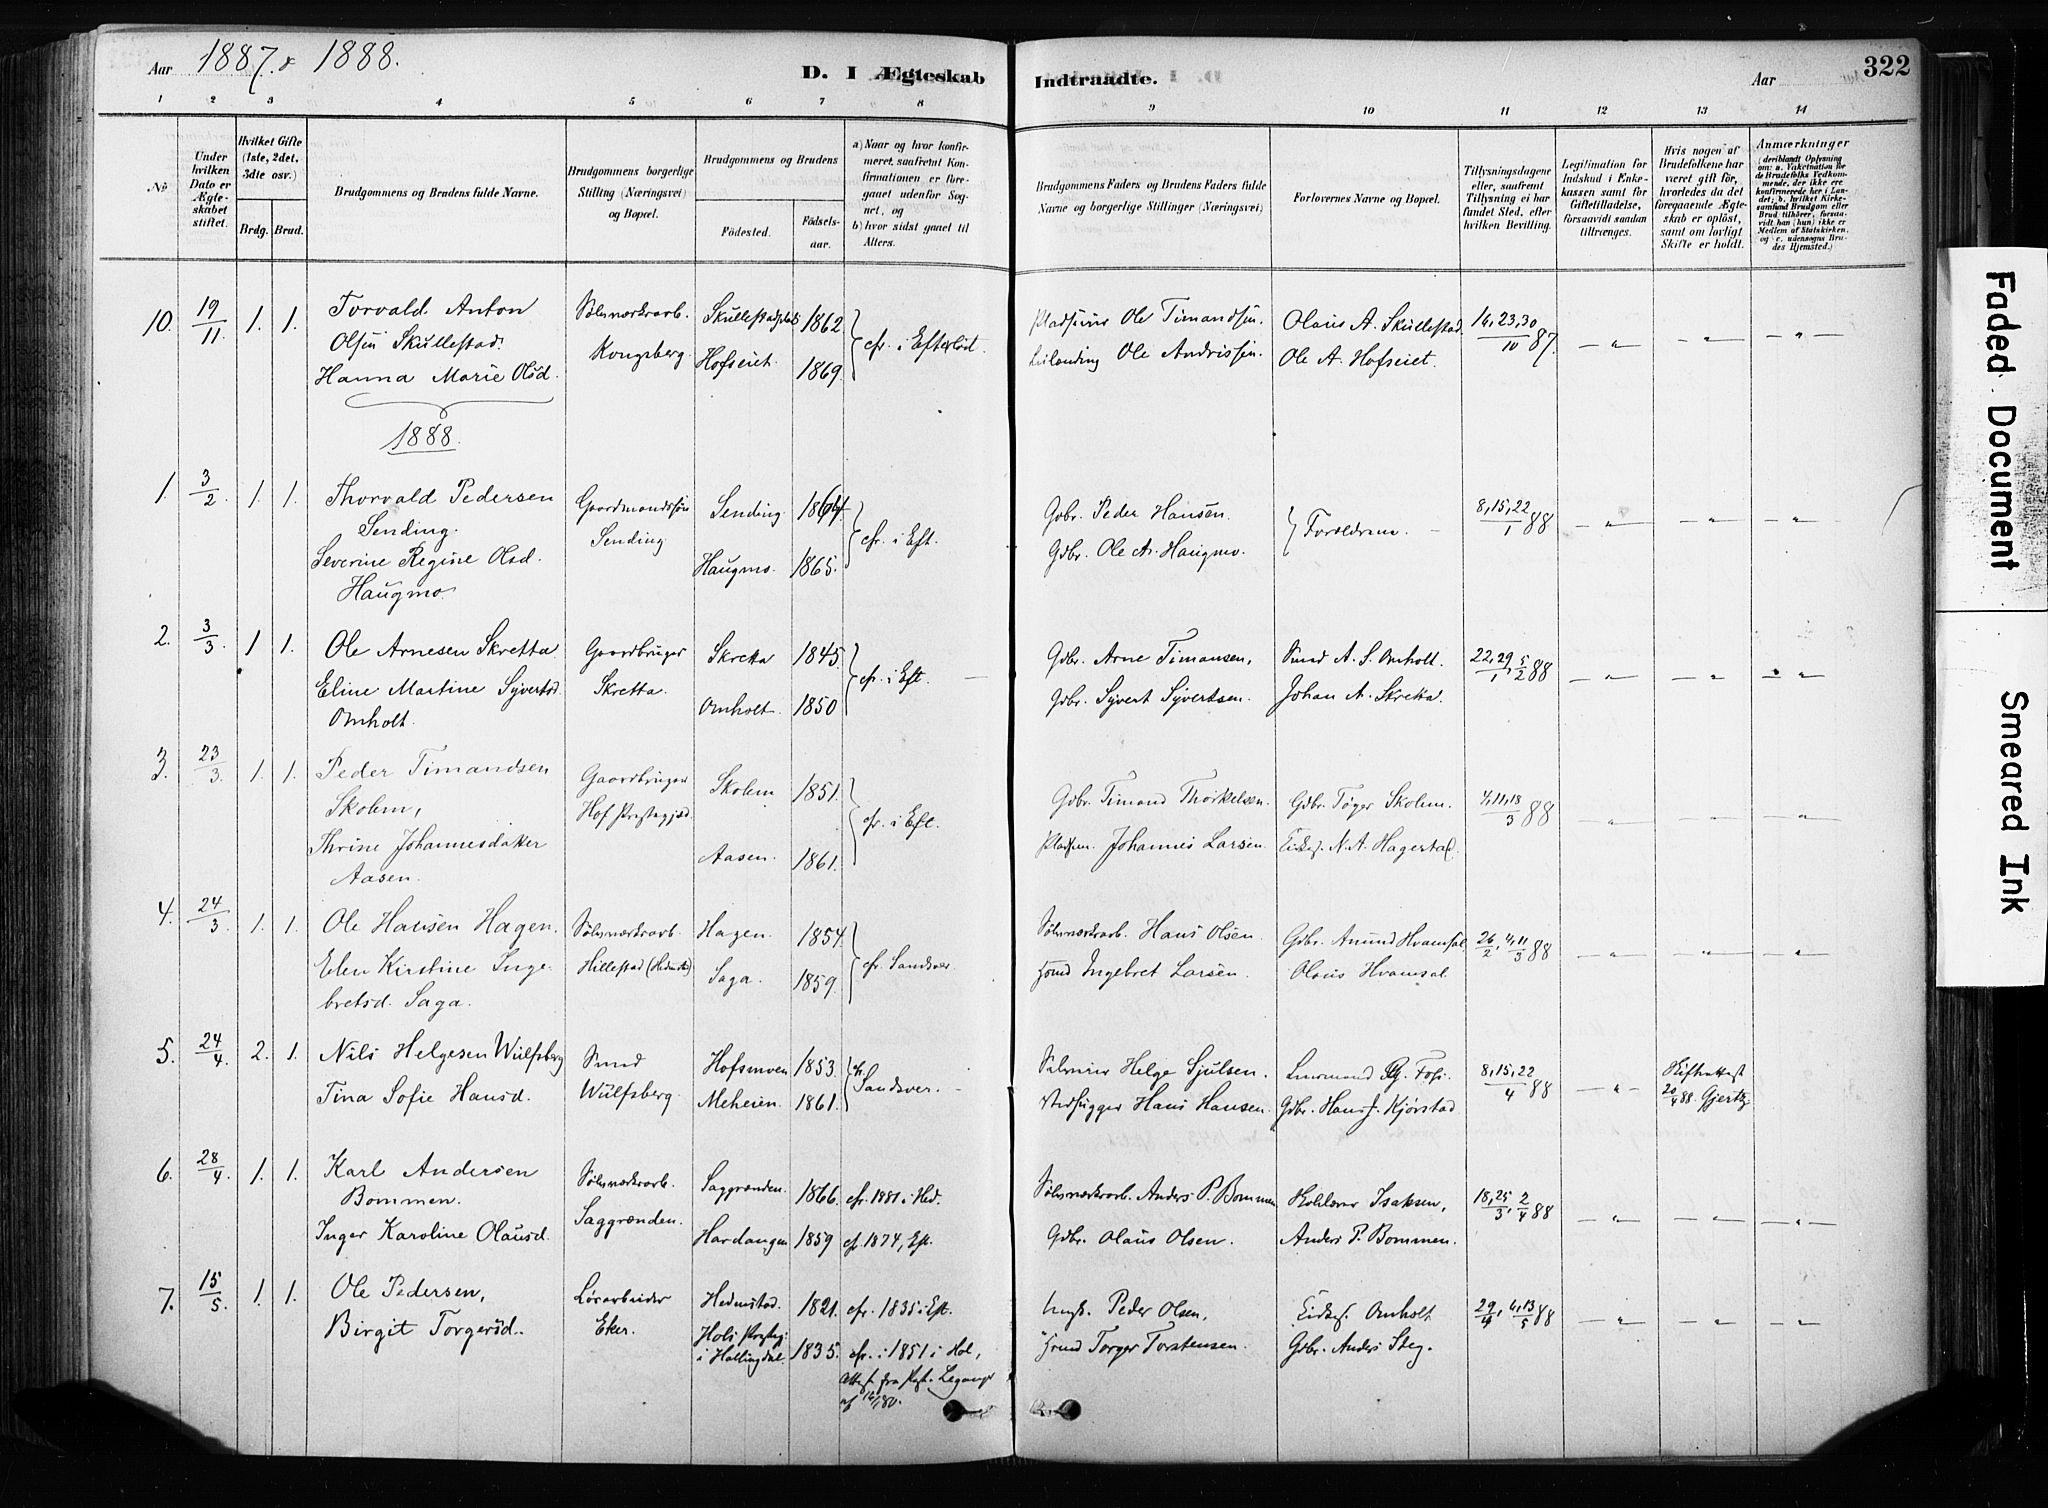 Aar 1887 & 1888.
D. I Ægteskab Indtraadte.
Aar
322
1 2 3 4 5 6 7 8 9 10 11 12 13 14
No
Under hvilken Dato er Ægteskabet stiftet.
Hvilket Gifte (1ste, 2det, 3die osv.)
Brdg. Brud.
Brudgommens og Brudens fulde Navne.
Brudgommens borgerlige Stilling (Næringsvei) og Bopæl.
Brudgommens og Brudens
Fødested. Fødselsaar.
a) Naar og hvor konfirmeret, saafremt Konfirmationen er foregaaet udenfor Sognet, og
b) hvor sidst gaaet til Alters.
Brudgommens Faders og Brudens Faders fulde Navne og borgerlige Stillinger (Næringsvei)
Forlovernes Navne og Bopæl.
Tillysningsdagene eller, saafremt Tillysning ei har fundet Sted, efter hvilken Bevilling.
Legitimation for Indskud i Enkekassen samt for Giftetilladelse, forsaavidt saadan tiltrænges.
Hvis nogen af Brudefolkene har været gift før, hvorledes da det foregaaende Ægteskab er opløst, samt om lovligt Skifte er holdt.
Anmærkninger
10. 19/11 1. 1. Torvald Anton Olsen Skullestad.
Sølvværksarb. Kongsberg
Skullestadplads 1862
Hanna Marie Olsd. Hofseiet 1869.
cfr. i Efterløit.
Ole Timandsen. Olaus A. Skullestad 16,23,30/10 87.
Ole Andrissen. Ole A. Hofseiet.
1888.
1. 3/2. 1. 1. Thorvald Pedersen Sending.
Gaardmandssøn Sending
Sending 1864.
Severine Regine Olsd. Haugmo. Haugmo. 1865.
cfr. i Eft.
Gbr. Peder Hansen. Forældrene. 8,15,22/1 88
Gdbr. Ole A. Haugmo.
2. 3/3. 1 1. Ole Arnesen Skretta
Gaardbruger Skretta.
Skretta 1845.
Eline Martine Syvertsd. Omholt. Omholt. 1850
cfr. i Eft.
Gdbr. Arne Timansen, Smed A. S. Omholt. 22,29/1, 5/2 88
Gdbr. Syvert Syvertsen. Johan A. Skretta.
3. 23/3. 1. 1. Peder Timandsen Skolem,
Gaardbruger Hof Præstegjæld
Skolem 1851.
Thrine Johannesdatter Aasen. Aasen. 1861.
cfr. i Eft.
Gdbr. Timand Thorkelsen. Gdbr. Tøger Skolem. 4,11,18/3 88
Pladsm. Johannes Larsen. N. A. Hagestad.
4. 24/3. 1. 1. Ole Hansen Hagen.
Sølvværksarb. Hillestad (Hedenstad)
Hagen. 1854.
Elen Kirstine Ingebretsd. Saga. Saga. 1859.
cfr. Sandsver.
Sølvværksarb. Hans Olsen. Gdbr. Amund Hvamsal 26/2, 4,11/3 88
Ingebret Larsen. Olaus Hvamsal
5. 24/4 2. 1. Nils Helgesen Wulfsberg
Smed Wulfsberg.
Hofsmoen 1853.
Tina Sofie Hansd. Meheien. 1861.
cfr. Sandsver.
Helge Sjulsen. G. Foss. 8,15,22/4 88
Hans Hansen. Gdbr. Hans J. Kjørstad
Skifteattest 20/4 88. Gjertz.
6. 28/4. 1. 1. Karl Andersen Bommen.
Sølvværksarb. Saggrenden.
Saggrenden. 1866. cfr. 1881 i Hed.
Inger Karoline Olausd. Hardangen 1859 cf. 1874, Eft.
Sølvværksarb. Anders P. Bommen Isaksen, 18,25/3, 2/4 88
Gdbr. Olaus Olsen. Anders P. Bommen.
7. 15/5. 1. 1. Ole Pedersen,
Løsarbeider Eker.
Hedenstad. 1821. cfr. 1835 i Eft.
Birgit Torgersd. Hols Præsteg. i Hallingdal. 1835. cfr. i 1851 i Hol,
Attest fra Præst. Leganger af 16/1 80.
Peder Olsen, Omholt, 29/4, 6,13/5 88
Torger Torstensen. Gdbr. Anders Steg.
Faded Document
Smeared Ink